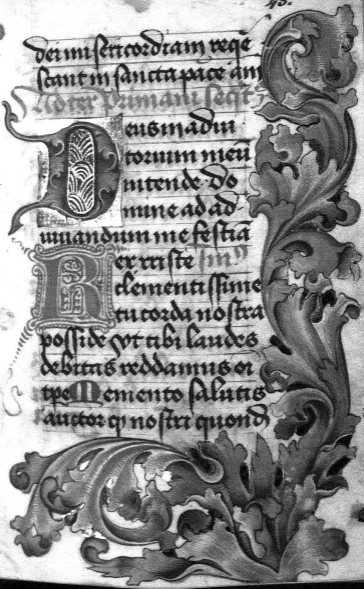 43.
dei misericordiam reqe
scant in sancta pace am
Noter Primam seqt
Deus in adiu
torium meū
intende Do
mine ad ad
iuuandum me festiā
Rex xriste Im9
clementissime
tu corda nostra
posside vt tibi laudes
debitas reddamus oi
tpe Memento salutis
auctor q nostri quond